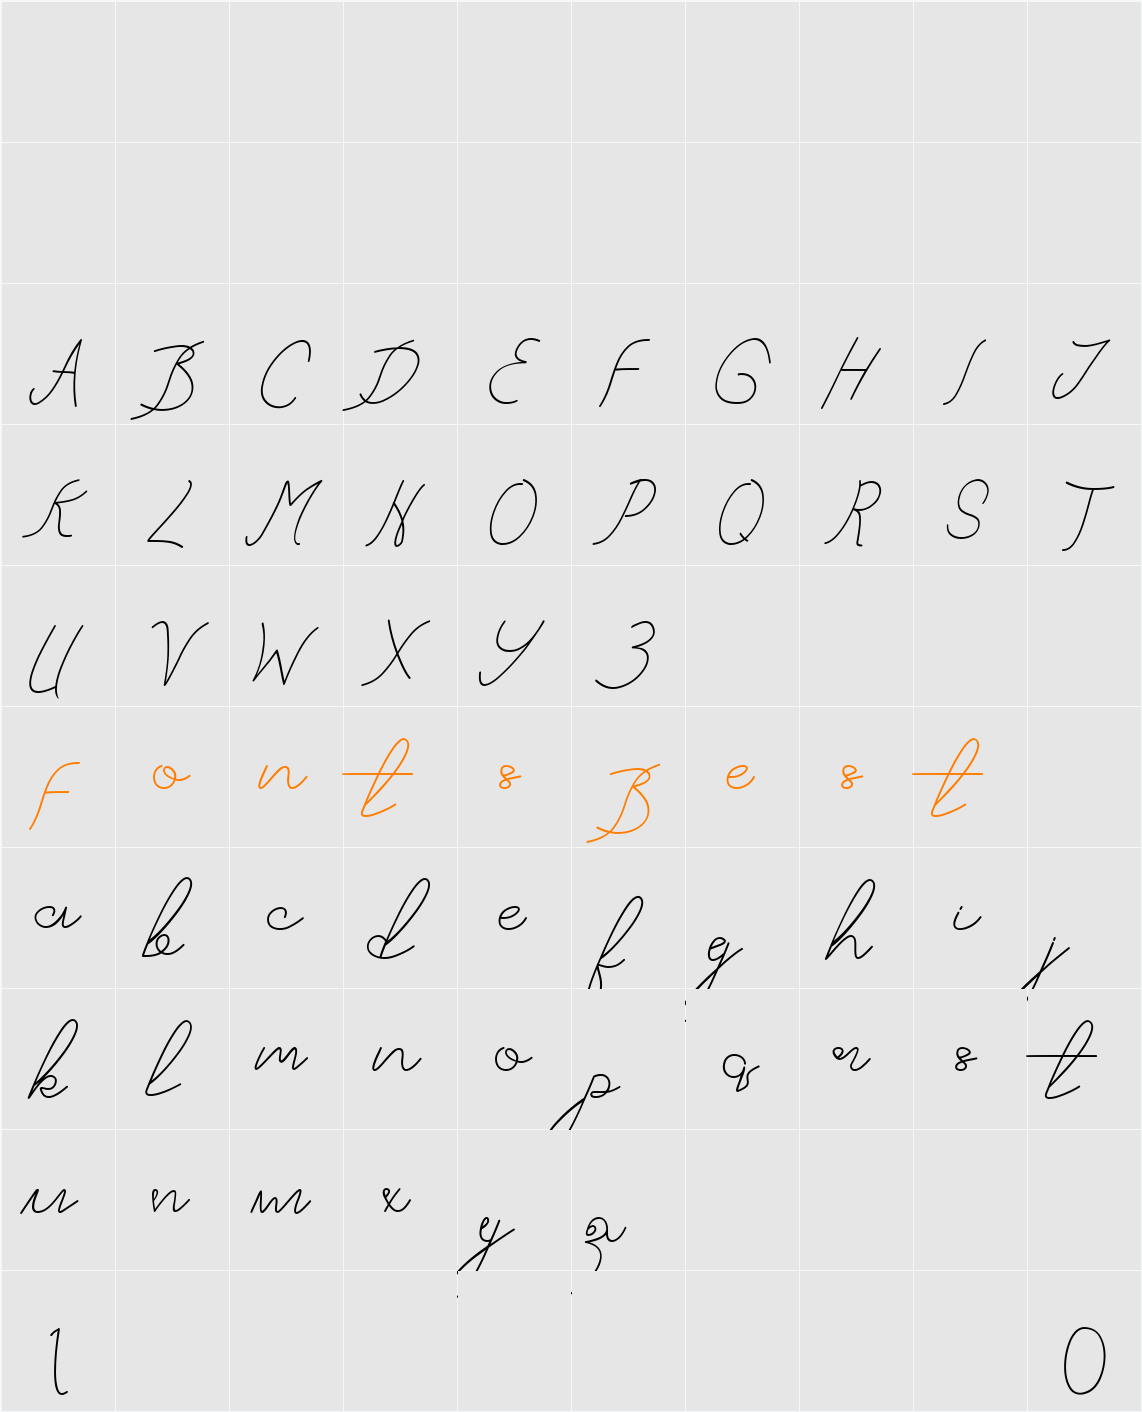 A B C D E F G H I J
K L M N O P Q R S T
U V W X Y Z
F o n t s B e s t
a b c d e f g h i j
k l m n o p q r s t
u v w x y z
1 0